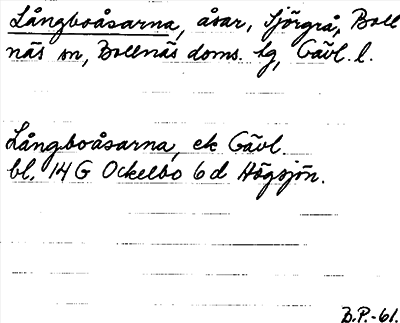 Långboåsarna, åsar, Sjörgrå, Boll
näs sn, Bollnäs doms. lg, Gävl. l.
Långboåsarna, ek Gävl
bl. 14 G Ockelbo 6d Högsjön.
B.P.-61.